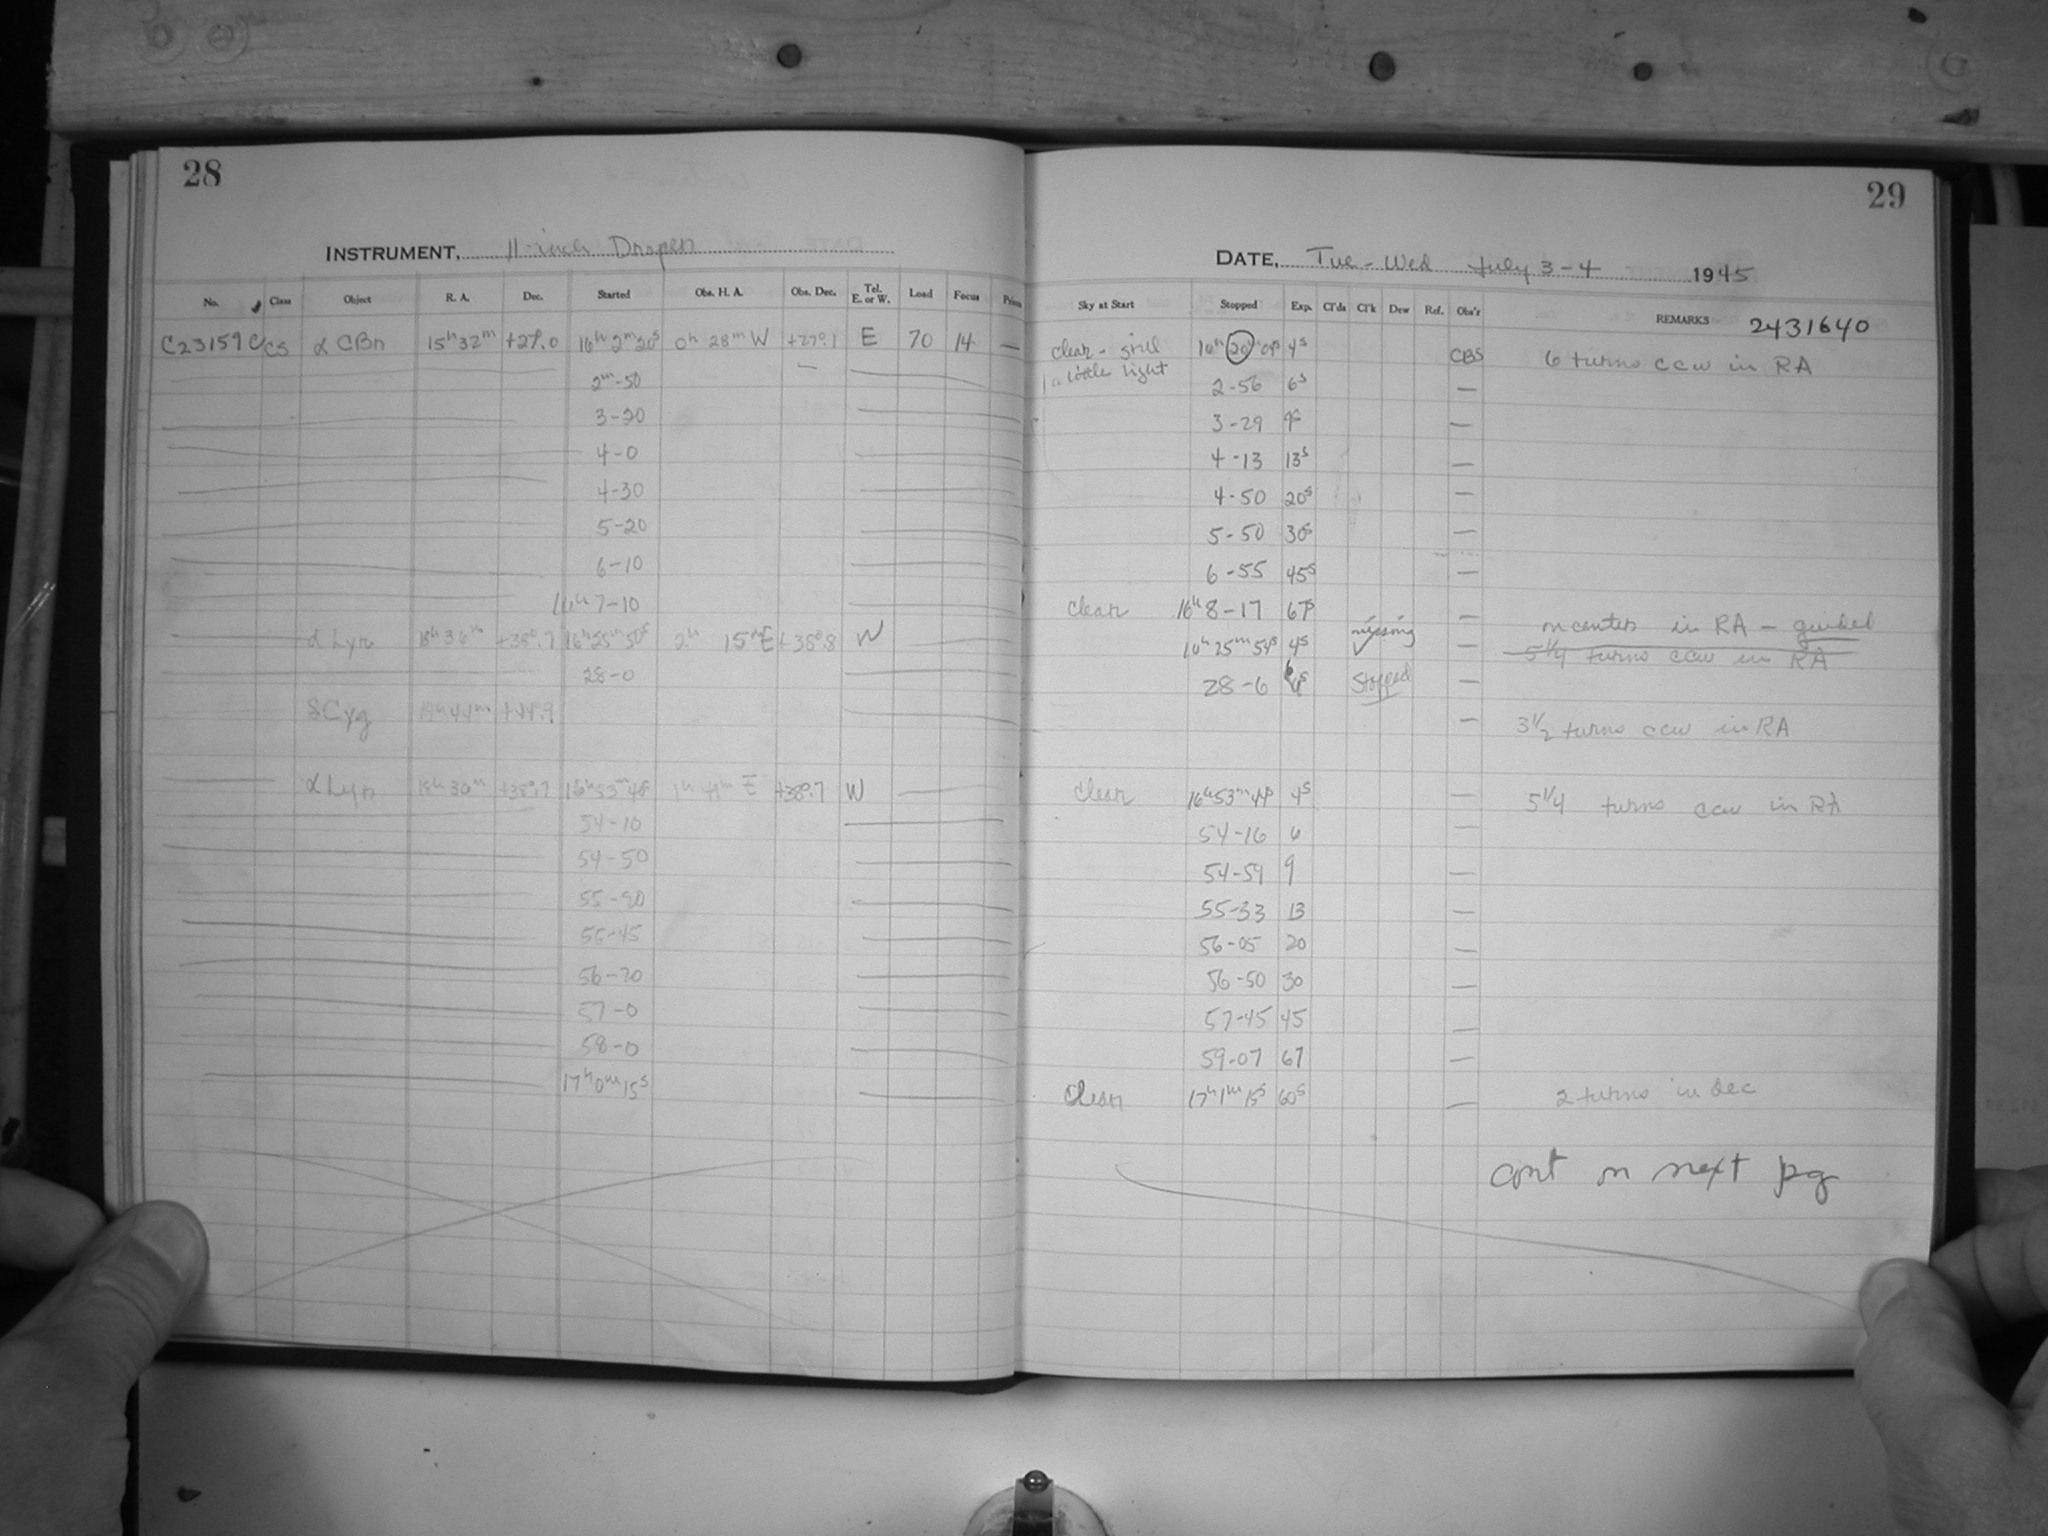 28
INSTRUMENT, 11-inch Draper
No. Class Object R. A. Dec. Started Obs. H. A. Obs. Dec. Tel. E. or W. Load Focus Prism
C23159 CS α CBn 15h 32m +27°.0 16h 2m 20s 0h 28m W +27°.1 E 70 14 —
2m-50
3-20
4-0
4-30
5-20
6-10
16h 7-10
α Lyr 18h 36m +38°.7 16h 25m 50s 2h 15m E +38°.8 W
28-0
δ Cyg 19h 44m +44°.9
α Lyr +38°.7 16h 53m E +38°.7 W
54-10
54-50
55-20
55-45
56-20
57-0
58-0
17h 0m 15s
29
DATE, Tue - Wed July 3-4 1945
Sky at Start Stopped Exp. Cl'ds Cl'k Dew Ref. Obs'r REMARKS 2431640
clear - still 20 4s CBS 6 turns ccw in RA
a little light 2-56 6s —
3-29 —
4-13 13s —
4-50 20s —
5-50 30s —
6-55 45s —
clear 16h 8-17 67s — in RA - guided
25m 54s 4s missing — 5 1/4 turns ccw in RA
28-6 stopped —
— 3 1/2 turns ccw in RA
clear 16h 53m 44s 4s — 5 1/4 turns ccw in RA
54-16 6 —
54-59 9 —
55-33 13 —
56-05 20 —
56-50 30 —
57-45 45 —
59-07 67 —
clear 17h 1m 15s 60s — 2 turns in dec
cont on next pg